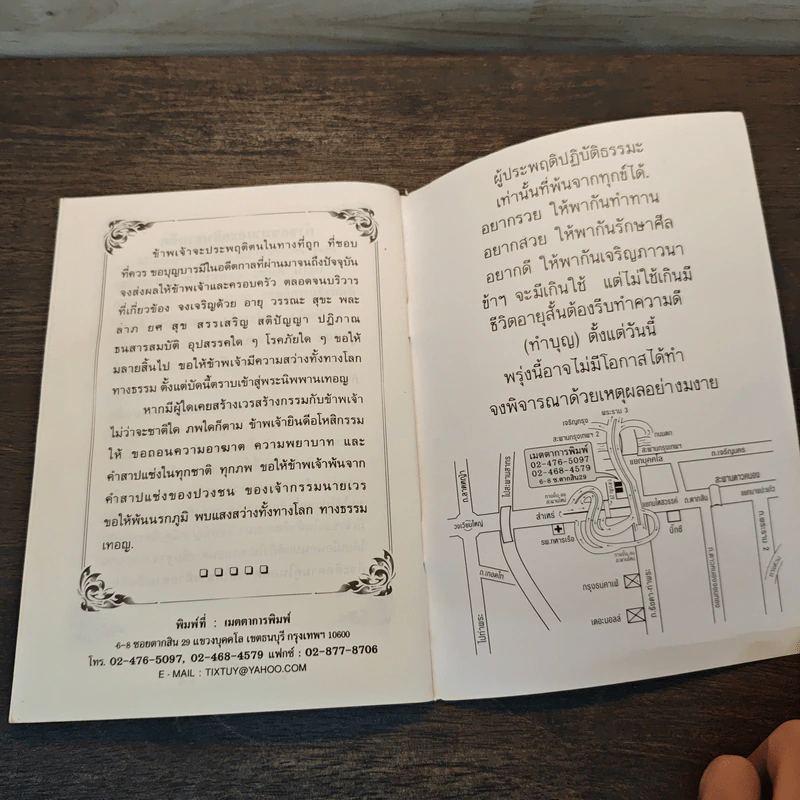 ข้าพเจ้าจะประพฤติตนในทางที่ถูก ที่ชอบ
ที่ควร ขอบุญบารมีในอดีตกาลที่ผ่านมาจนถึงปัจจุบัน
จงส่งผลให้ข้าพเจ้าและครอบครัว ตลอดจนบริวาร
ที่เกี่ยวข้อง จงเจริญด้วย อายุ วรรณะ สุขะ พละ
ลาภ ยศ สุข สรรเสริญ สติปัญญา ปฏิภาณ
ธนสารสมบัติ อุปสรรคใด ๆ โรคภัยใด ๆ ขอให้
มลายสิ้นไป ขอให้ข้าพเจ้ามีความสว่างทั้งทางโลก
ทางธรรม ตั้งแต่บัดนี้ตราบเข้าสู่พระนิพพานเทอญ
หากมีผู้ใดเคยสร้างเวรสร้างกรรมกับข้าพเจ้า
ไม่ว่าจะชาติใด ภพใดก็ตาม ข้าพเจ้ายินดีอโหสิกรรม
ให้ ขอถอนความอาฆาต ความพยาบาท และ
คำสาปแช่งในทุกชาติ ทุกภพ ขอให้ข้าพเจ้าพ้นจาก
คำสาปแช่งของปวงชน ของเจ้ากรรมนายเวร
ขอให้พ้นนรกภูมิ พบแสงสว่างทั้งทางโลก ทางธรรม
เทอญ.
พิมพ์ที่ : เมตตาการพิมพ์
6-8 ซอยตากสิน 29 แขวงบุคคโล เขตธนบุรี กรุงเทพฯ 10600
โทร. 02-476-5097, 02-468-4579 แฟกซ์ : 02-877-8706
E - MAIL : TIXTUY@YAHOO.COM
ผู้ประพฤติปฏิบัติธรรมะ
เท่านั้นที่พ้นจากทุกข์ได้.
อยากรวย ให้พากันทำทาน
อยากสวย ให้พากันรักษาศีล
อยากดี ให้พากันเจริญภาวนา
ข้าฯ จะมีเกินใช้ แต่ไม่ใช้เกินมี
ชีวิตอายุสั้นต้องรีบทำความดี
(ทำบุญ) ตั้งแต่วันนี้
พรุ่งนี้อาจไม่มีโอกาสได้ทำ
จงพิจารณาด้วยเหตุผลอย่างมงาย
พระราม 2
เจริญกรุง
สะพานกรุงเทพฯ 2
ถนนตก
สะพานกรุงเทพฯ
แยกบุคคโล
ถ.เจริญนคร
เมตตาการพิมพ์
02-476-5097
02-468-4579
6-8 ซ.ตากสิน29
ถ.ลาดหญ้า
ไปสะพานสาทร
วงเวียนใหญ่
สำเหร่
รพ.ทหารเรือ
ถ.ตากสิน
สะพานดาวคนอง
บิ๊กซี
ถ.พระราม 2
ถ.เทอดไท
ไปท่าพระ
กรุงธนคาเฟ่
เดอะมอลล์